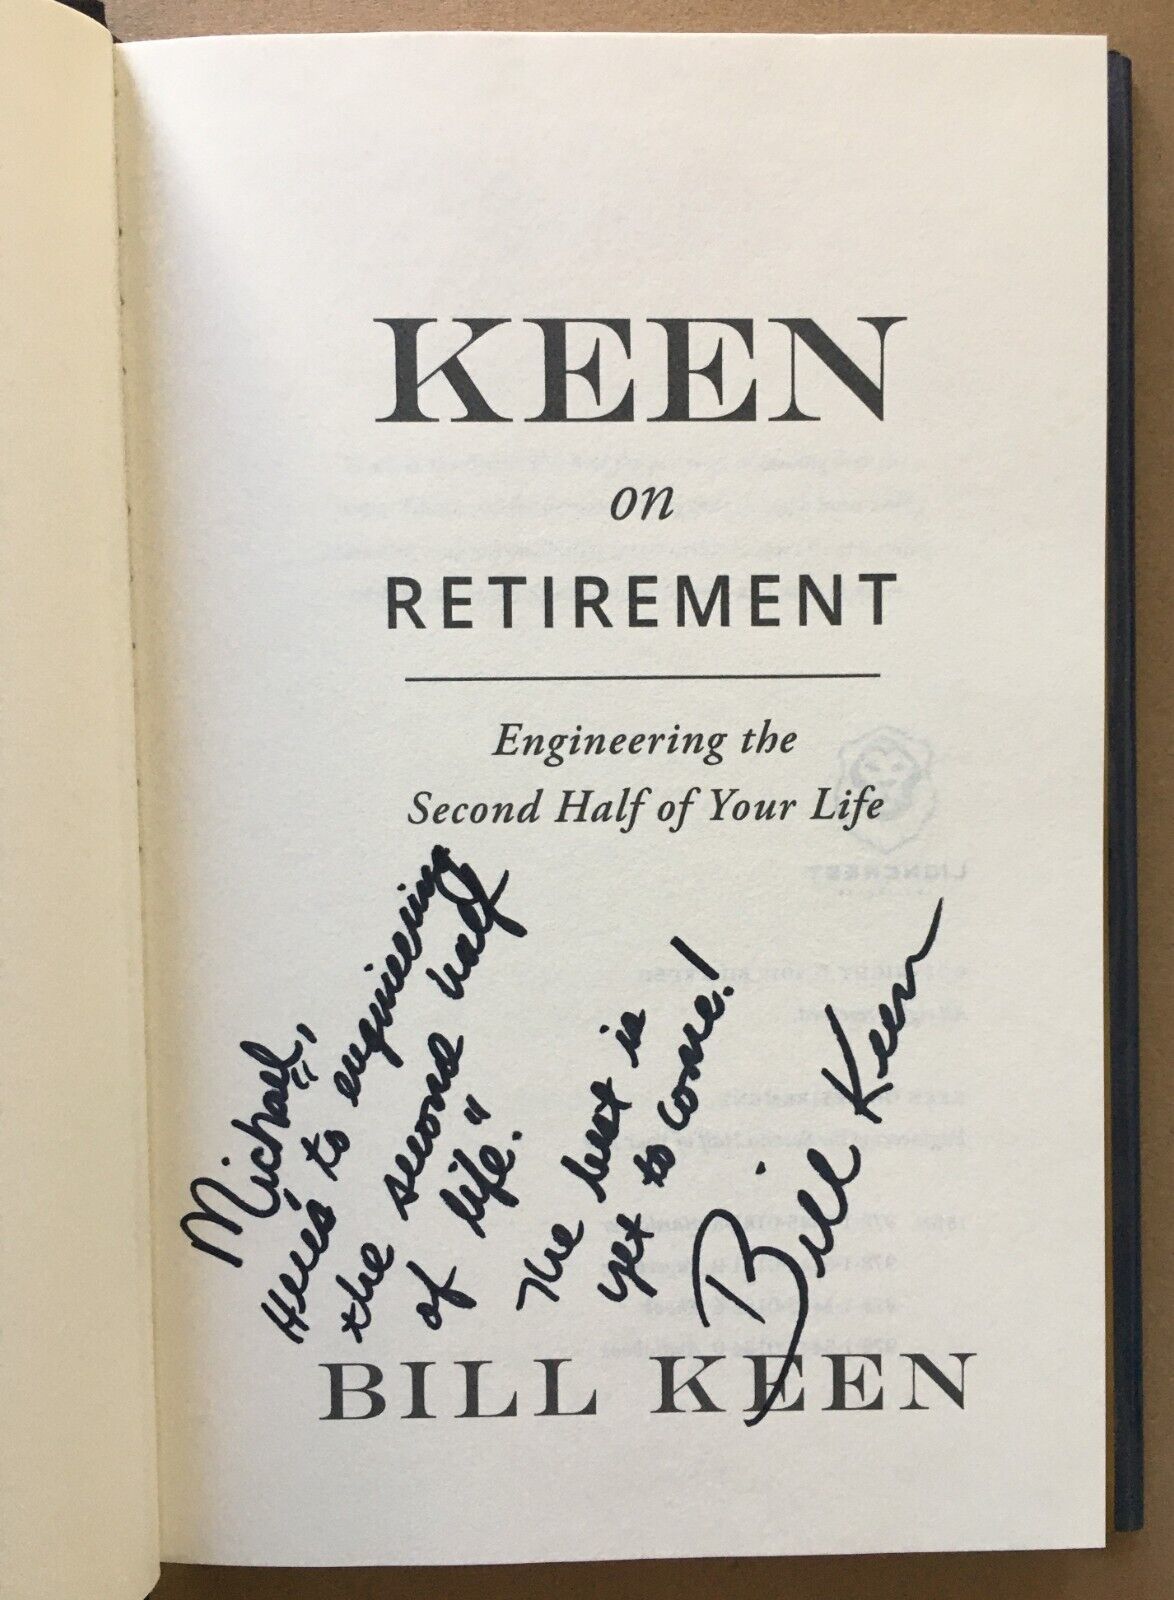 KEEN
on
RETIREMENT
Engineering the
Second Half of Your Life
Michael,
Here's to "engineering
the second half
of life."
The best is
yet to come!
Bill Keen
BILL KEEN